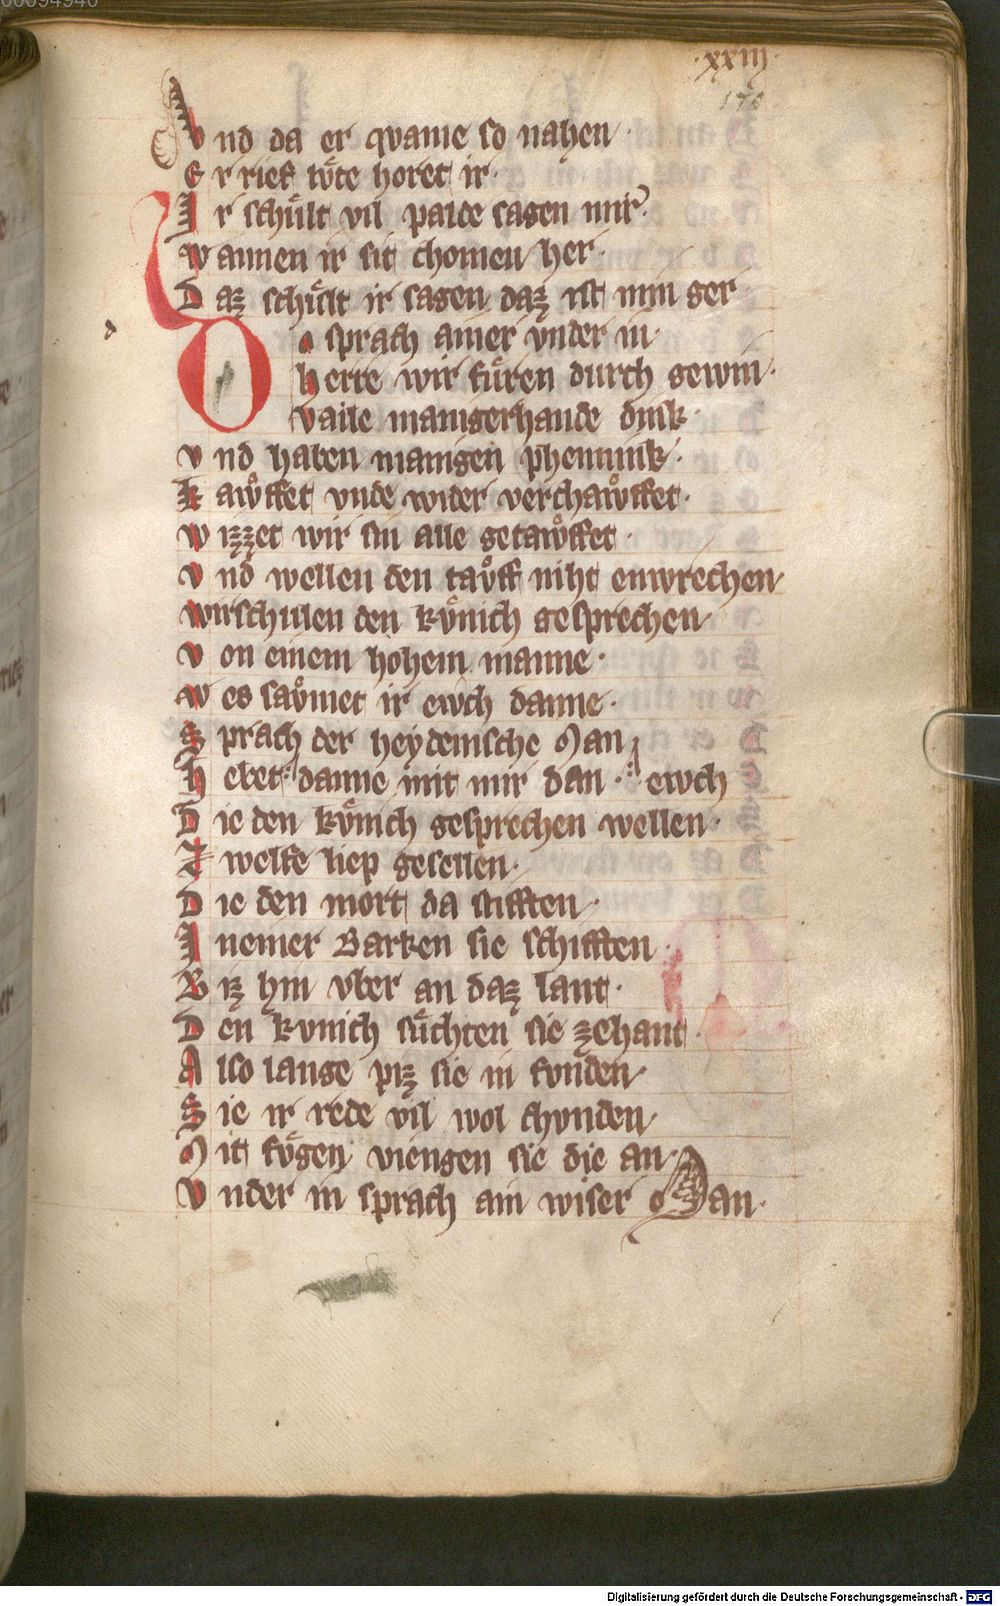 00094946
·xxiij·
176
Vnd da er qvame so nahen·
Er rief lᷓte horet ir·
Ir schuͤlt vil palde sagen mir·
Wannen ir sit chomen her·
Daz schuͤlt ir sagen daz ist min ger·
Do sprach ainer vnder in·
herre wir fuͤren durch gewin·
vaile manigerhande dink·
Vnd haben manigen phennink·
Kaͮffet vnde wider verchaͮffet·
Wizzet wir sin alle getaͮffet·
Vnd wellen den taͮff niht enwrechen·
Wir schulen den kvͤnich gesprechen·
Von einem hohem manne·
Wes saͮmet ir ewch danne·
Sprach der heydenische Man
Hebet danne mit mir dan· ewch
Die den kvͤnich gesprechen wellen·
Zwelfe liep gesellen·
Die den mort da stifften·
In einer Barken sie schifften·
Biz hin vber an daz lant·
Den kvnich suͤchten sie zehant·
Also lange piz sie in fvnden·
Sie ir rede vil wol chvnden·
Mit fvͤgen viengen sie die an·
Vnder in sprach ain wiser Man·
Digitalisierung gefördert durch die Deutsche Forschungsgemeinschaft - DFG